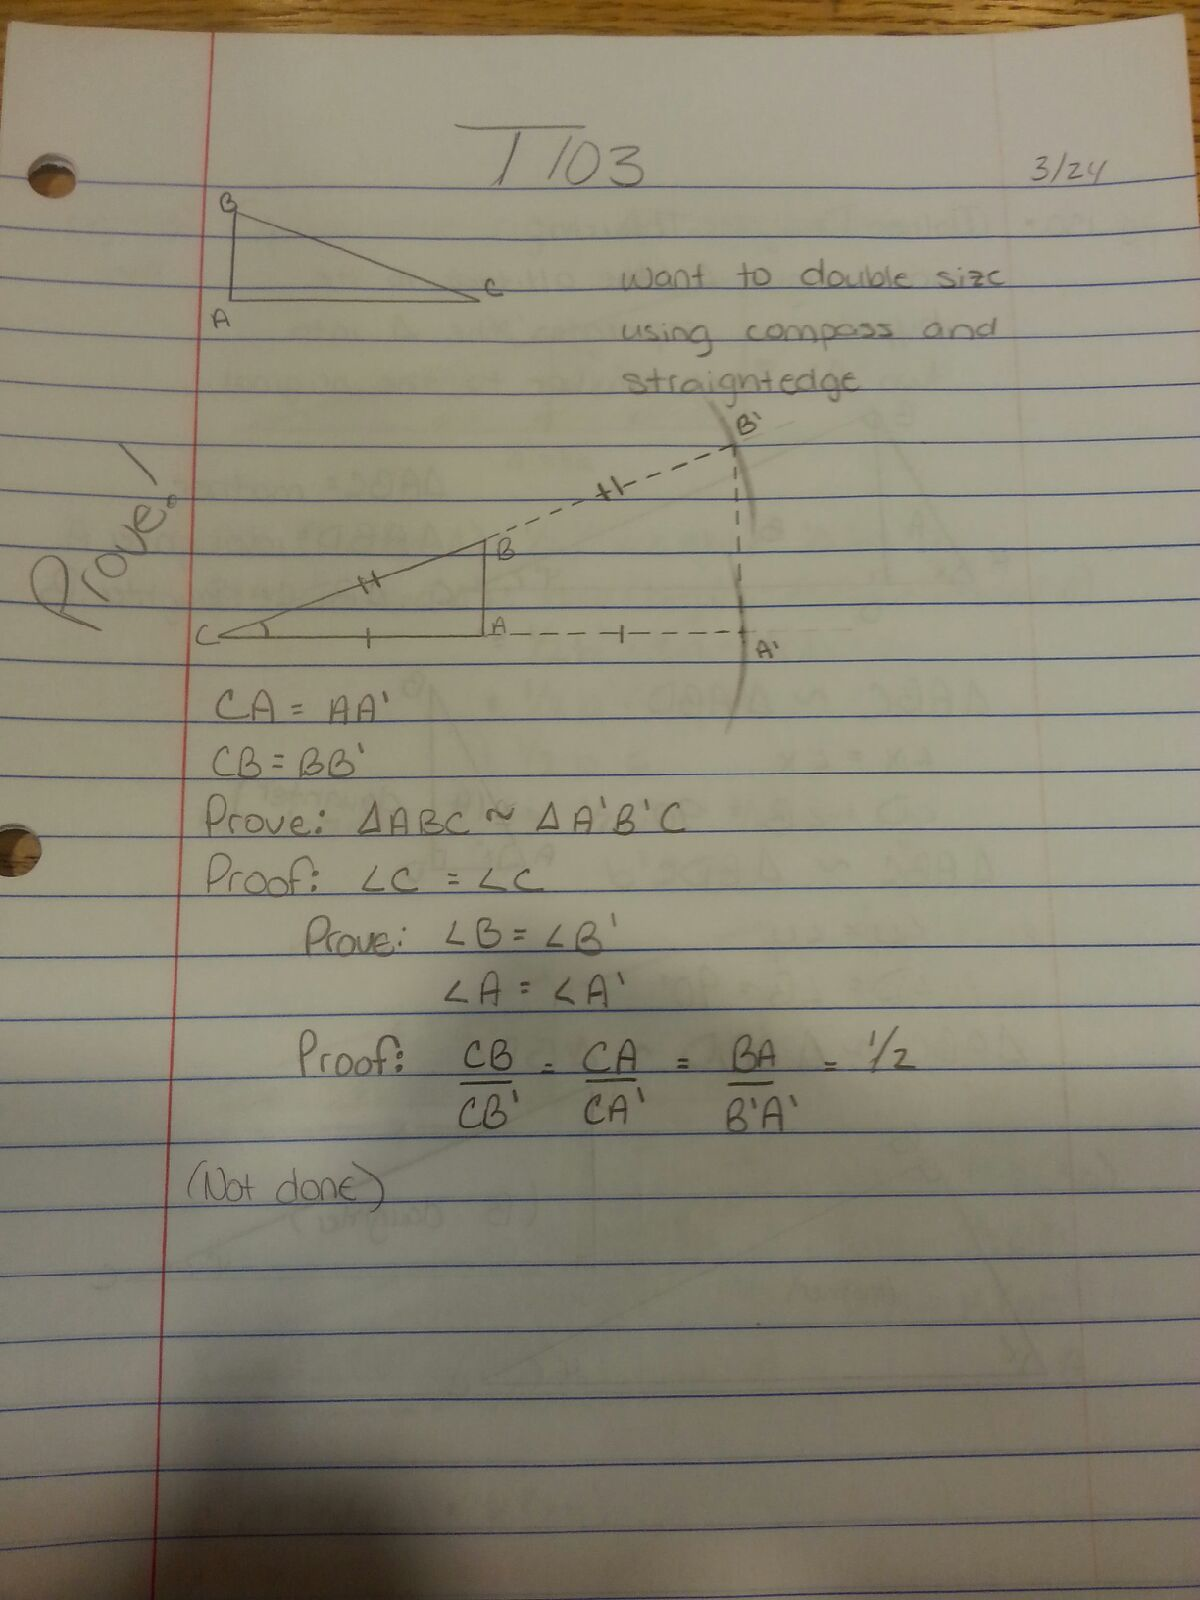 T103
3/24
B
A
C
want to double size
using compass and
straightedge
Prove!
B'
B
C
A
A'
CA = AA'
CB = BB'
Prove: ΔABC ~ ΔA'B'C
Proof: ∠C = ∠C
Prove: ∠B = ∠B'
∠A = ∠A'
Proof: CB/CB' = CA/CA' = BA/B'A' = 1/2
(Not done)